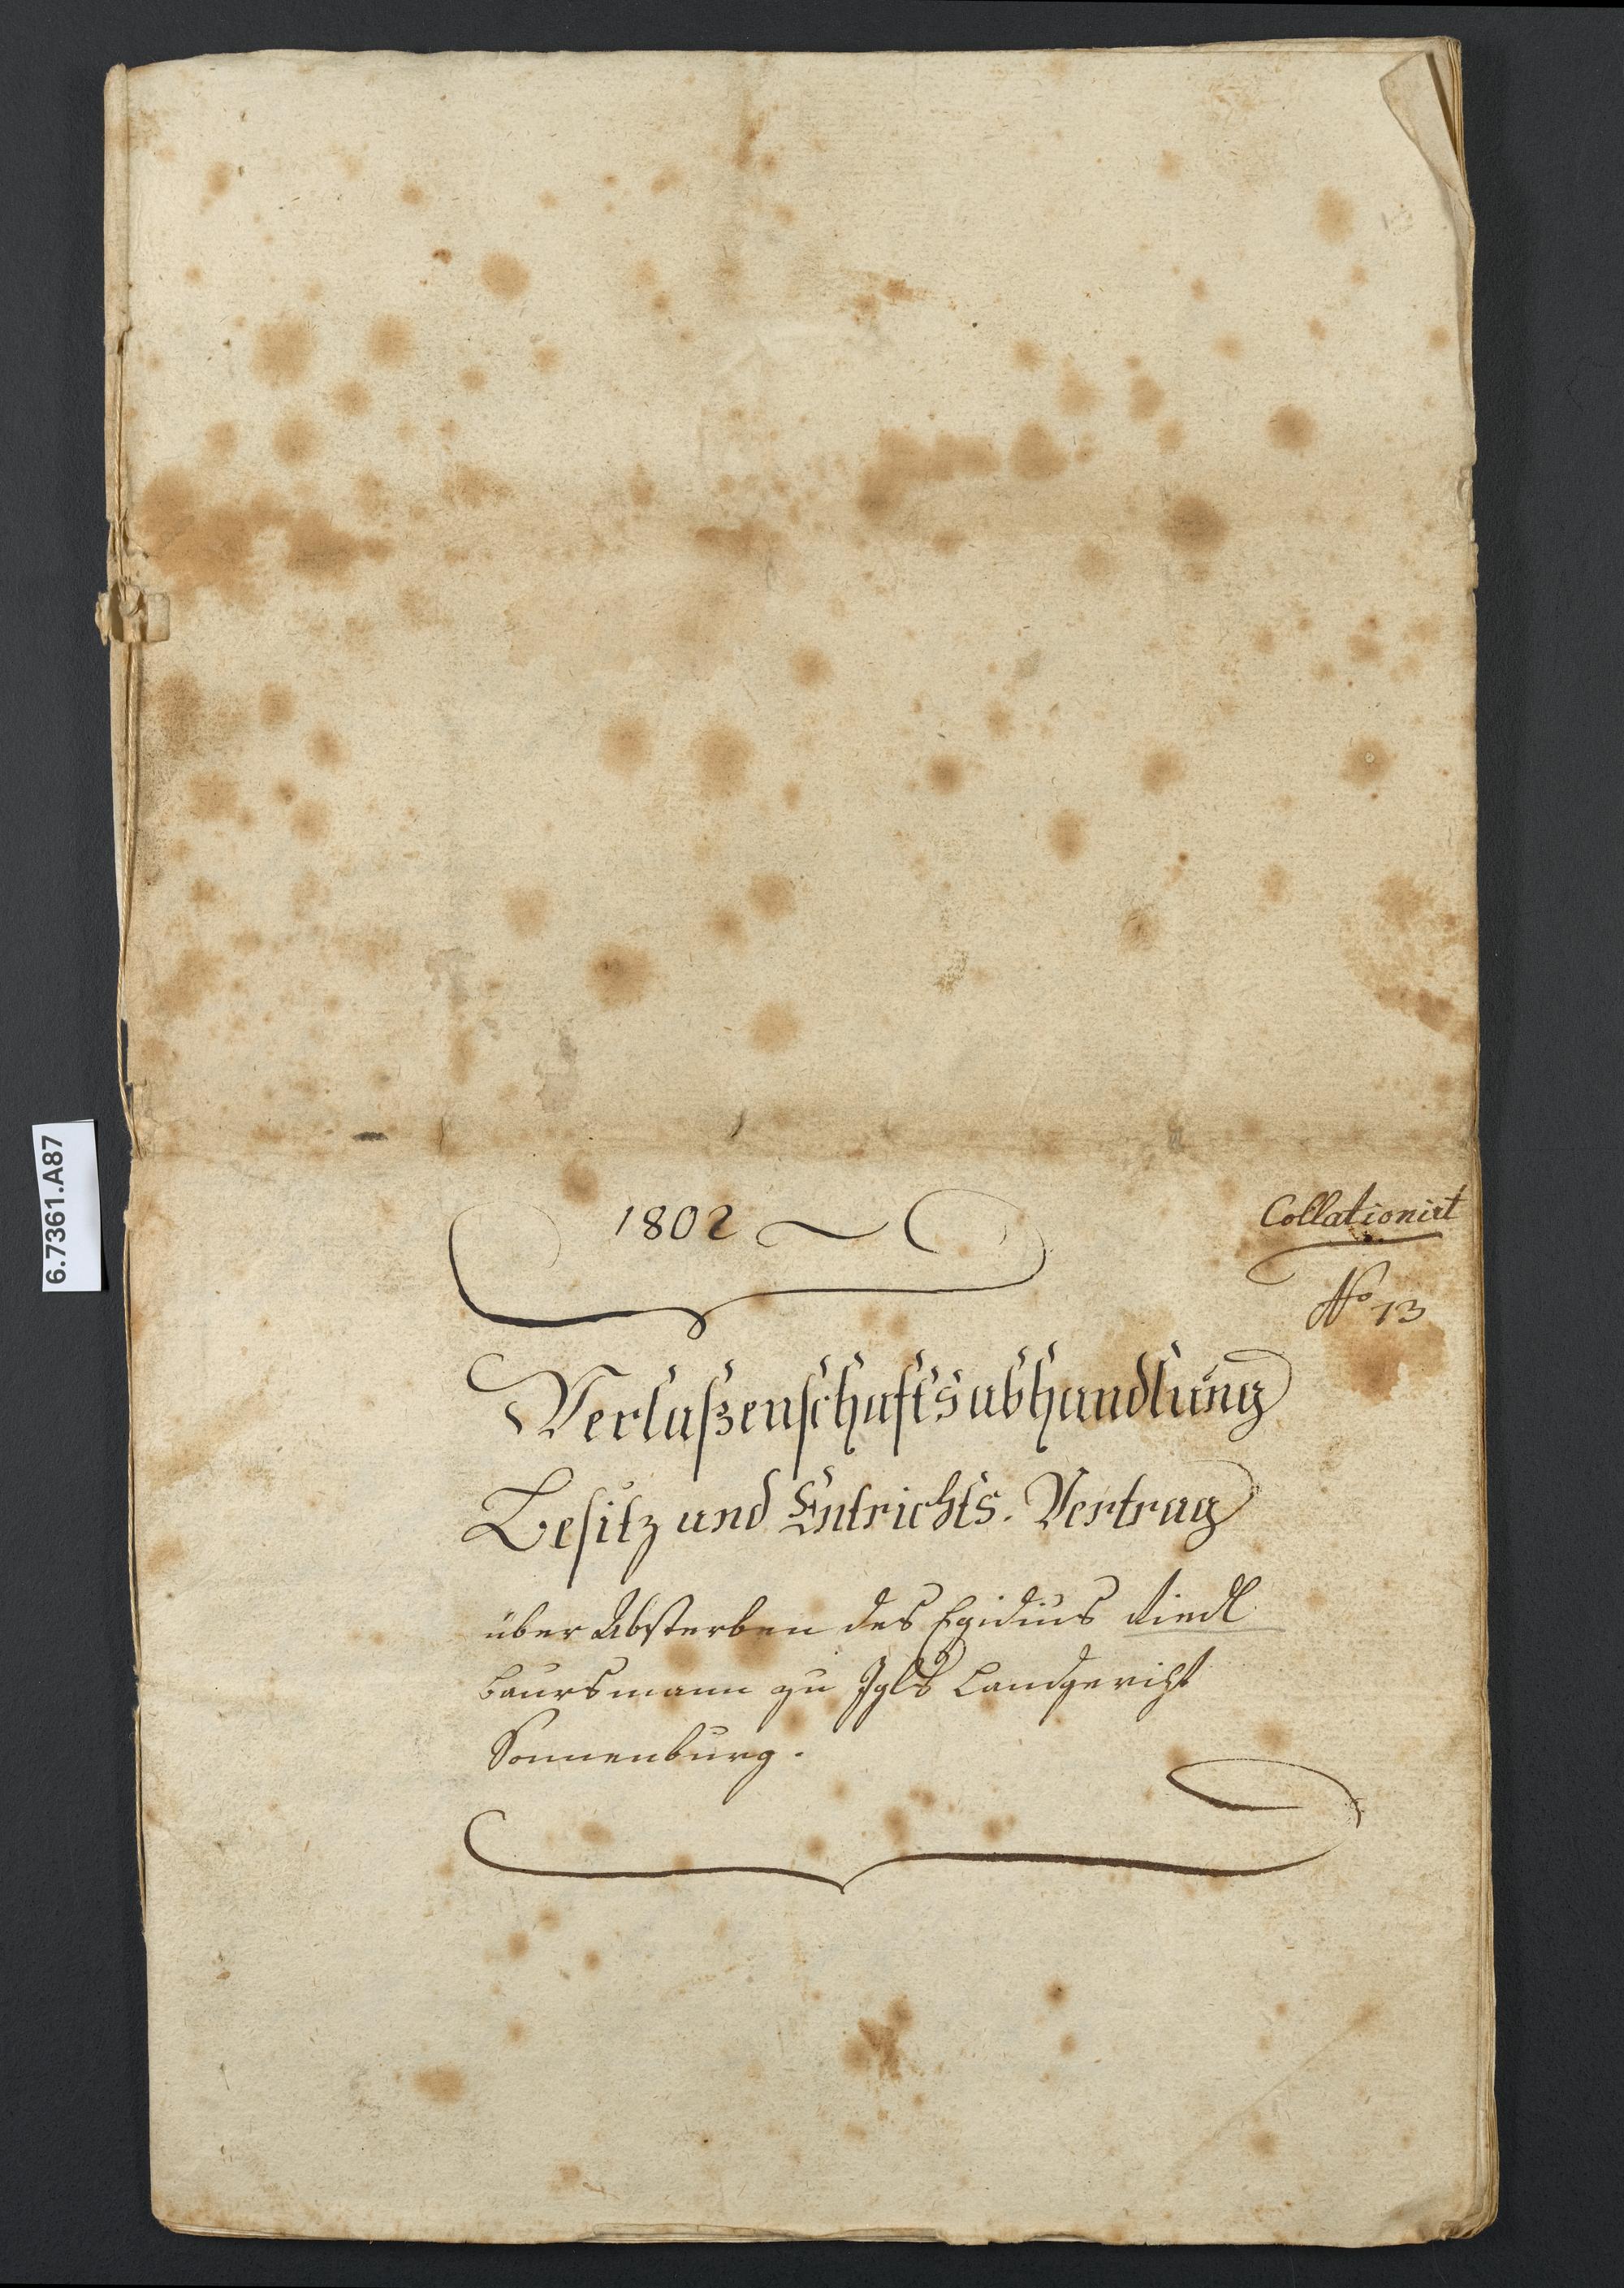 1802
Collationirt
No 13
Verlaßenschaftsabhandlung
Besitz und Entrichts. Vertrag
über Absterben des Egidius Riedl
Baursmann zu Igls Landgericht
Sonnenburg.
6.7361.A87